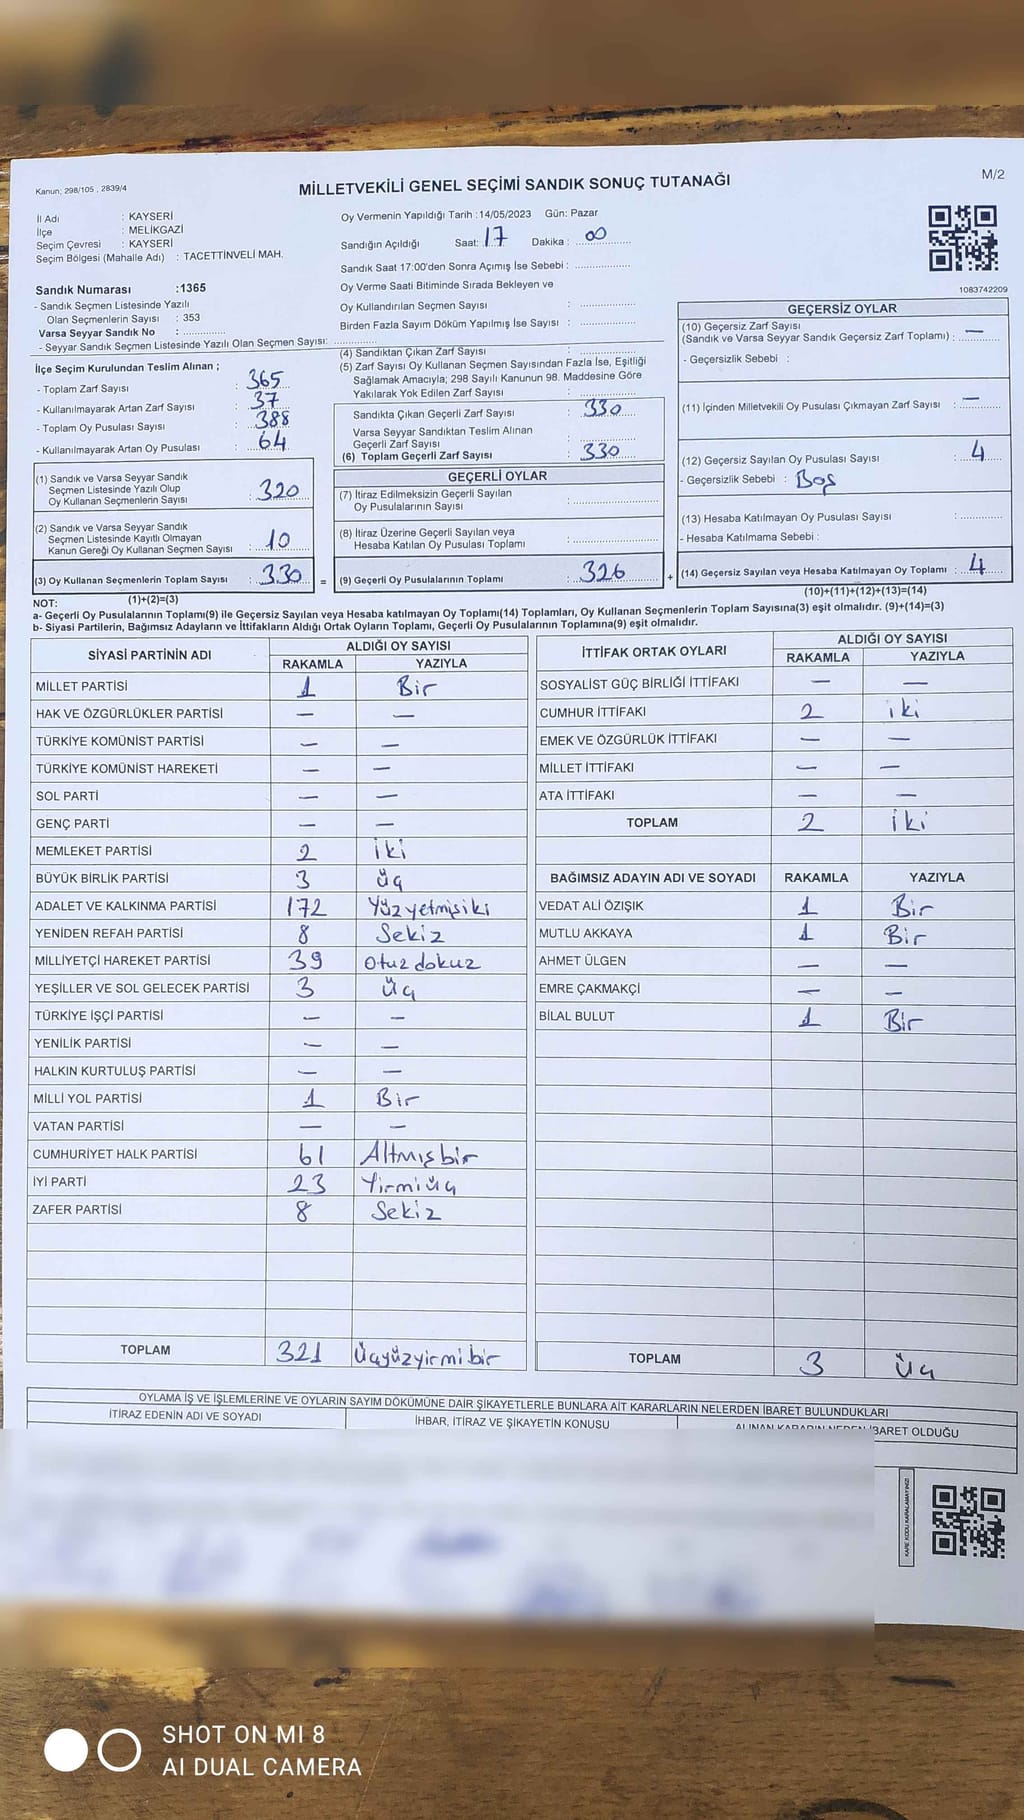 Kanun; 298/105 , 2839/4
MİLLETVEKİLİ GENEL SEÇİMİ SANDIK SONUÇ TUTANAĞI
M/2
İl Adı : KAYSERİ
İlçe : MELİKGAZİ
Seçim Çevresi : KAYSERİ
Seçim Bölgesi (Mahalle Adı) : TACETTİNVELİ MAH.
Sandık Numarası :1365
- Sandık Seçmen Listesinde Yazılı
Olan Seçmenlerin Sayısı : 353
Varsa Seyyar Sandık No : ..............
- Seyyar Sandık Seçmen Listesinde Yazılı Olan Seçmen Sayısı: ..............
İlçe Seçim Kurulundan Teslim Alınan ;
- Toplam Zarf Sayısı : 365
- Kullanılmayarak Artan Zarf Sayısı : 37
- Toplam Oy Pusulası Sayısı : 388
- Kullanılmayarak Artan Oy Pusulası : 64
(1) Sandık ve Varsa Seyyar Sandık
Seçmen Listesinde Yazılı Olup
Oy Kullanan Seçmenlerin Sayısı : 320
(2) Sandık ve Varsa Seyyar Sandık
Seçmen Listesinde Kayıtlı Olmayan
Kanun Gereği Oy Kullanan Seçmen Sayısı : 10
(3) Oy Kullanan Seçmenlerin Toplam Sayısı : 330 =
(1)+(2)=(3)
Oy Vermenin Yapıldığı Tarih :14/05/2023 Gün: Pazar
Sandığın Açıldığı Saat: 17 Dakika : 00
Sandık Saat 17:00'den Sonra Açımış İse Sebebi : ..................
Oy Verme Saati Bitiminde Sırada Bekleyen ve
Oy Kullandırılan Seçmen Sayısı : ..................
Birden Fazla Sayım Döküm Yapılmış İse Sayısı : ..................
(4) Sandıktan Çıkan Zarf Sayısı : ..................
(5) Zarf Sayısı Oy Kullanan Seçmen Sayısından Fazla İse, Eşitliği
Sağlamak Amacıyla; 298 Sayılı Kanunun 98. Maddesine Göre
Yakılarak Yok Edilen Zarf Sayısı : ..................
Sandıkta Çıkan Geçerli Zarf Sayısı : 330
Varsa Seyyar Sandıktan Teslim Alınan
Geçerli Zarf Sayısı : ..................
(6) Toplam Geçerli Zarf Sayısı : 330
GEÇERLİ OYLAR
(7) İtiraz Edilmeksizin Geçerli Sayılan
Oy Pusulalarının Sayısı : ..................
(8) İtiraz Üzerine Geçerli Sayılan veya
Hesaba Katılan Oy Pusulası Toplamı : ..................
(9) Geçerli Oy Pusulalarının Toplamı : 326 +
1083742209
GEÇERSİZ OYLAR
(10) Geçersiz Zarf Sayısı
(Sandık ve Varsa Seyyar Sandık Geçersiz Zarf Toplamı) : —
- Geçersizlik Sebebi :
(11) İçinden Milletvekili Oy Pusulası Çıkmayan Zarf Sayısı : —
(12) Geçersiz Sayılan Oy Pusulası Sayısı : 4
- Geçersizlik Sebebi : Boş
(13) Hesaba Katılmayan Oy Pusulası Sayısı : ..............
- Hesaba Katılmama Sebebi :
(14) Geçersiz Sayılan veya Hesaba Katılmayan Oy Toplamı : 4
(10)+(11)+(12)+(13)=(14)
NOT:
a- Geçerli Oy Pusulalarının Toplamı(9) ile Geçersiz Sayılan veya Hesaba katılmayan Oy Toplamı(14) Toplamları, Oy Kullanan Seçmenlerin Toplam Sayısına(3) eşit olmalıdır. (9)+(14)=(3)
b- Siyasi Partilerin, Bağımsız Adayların ve İttifakların Aldığı Ortak Oyların Toplamı, Geçerli Oy Pusulalarının Toplamına(9) eşit olmalıdır.
SİYASİ PARTİNİN ADI ALDIĞI OY SAYISI
RAKAMLA YAZIYLA
MİLLET PARTİSİ 1 Bir
HAK VE ÖZGÜRLÜKLER PARTİSİ — —
TÜRKİYE KOMÜNİST PARTİSİ — —
TÜRKİYE KOMÜNİST HAREKETİ — —
SOL PARTİ — —
GENÇ PARTİ — —
MEMLEKET PARTİSİ 2 iki
BÜYÜK BİRLİK PARTİSİ 3 üç
ADALET VE KALKINMA PARTİSİ 172 Yüzyetmişiki
YENİDEN REFAH PARTİSİ 8 Sekiz
MİLLİYETÇİ HAREKET PARTİSİ 39 otuzdokuz
YEŞİLLER VE SOL GELECEK PARTİSİ 3 üç
TÜRKİYE İŞÇİ PARTİSİ — —
YENİLİK PARTİSİ — —
HALKIN KURTULUŞ PARTİSİ — —
MİLLİ YOL PARTİSİ 1 Bir
VATAN PARTİSİ — —
CUMHURİYET HALK PARTİSİ 61 Altmışbir
İYİ PARTİ 23 Yirmiüç
ZAFER PARTİSİ 8 Sekiz
TOPLAM 321 Üçyüzyirmibir
İTTİFAK ORTAK OYLARI ALDIĞI OY SAYISI
RAKAMLA YAZIYLA
SOSYALİST GÜÇ BİRLİĞİ İTTİFAKI — —
CUMHUR İTTİFAKI 2 iki
EMEK VE ÖZGÜRLÜK İTTİFAKI — —
MİLLET İTTİFAKI — —
ATA İTTİFAKI — —
TOPLAM 2 iki
BAĞIMSIZ ADAYIN ADI VE SOYADI RAKAMLA YAZIYLA
VEDAT ALİ ÖZIŞIK 1 Bir
MUTLU AKKAYA 1 Bir
AHMET ÜLGEN — —
EMRE ÇAKMAKÇİ — —
BİLAL BULUT 1 Bir
TOPLAM 3 üç
OYLAMA İŞ VE İŞLEMLERİNE VE OYLARIN SAYIM DÖKÜMÜNE DAİR ŞİKAYETLERLE BUNLARA AİT KARARLARIN NELERDEN İBARET BULUNDUKLARI
İTİRAZ EDENİN ADI VE SOYADI
İHBAR, İTİRAZ VE ŞİKAYETİN KONUSU
ALINAN KARARIN NEDEN İBARET OLDUĞU
KARE KODU KARALAMAYINIZ!
SHOT ON MI 8
AI DUAL CAMERA